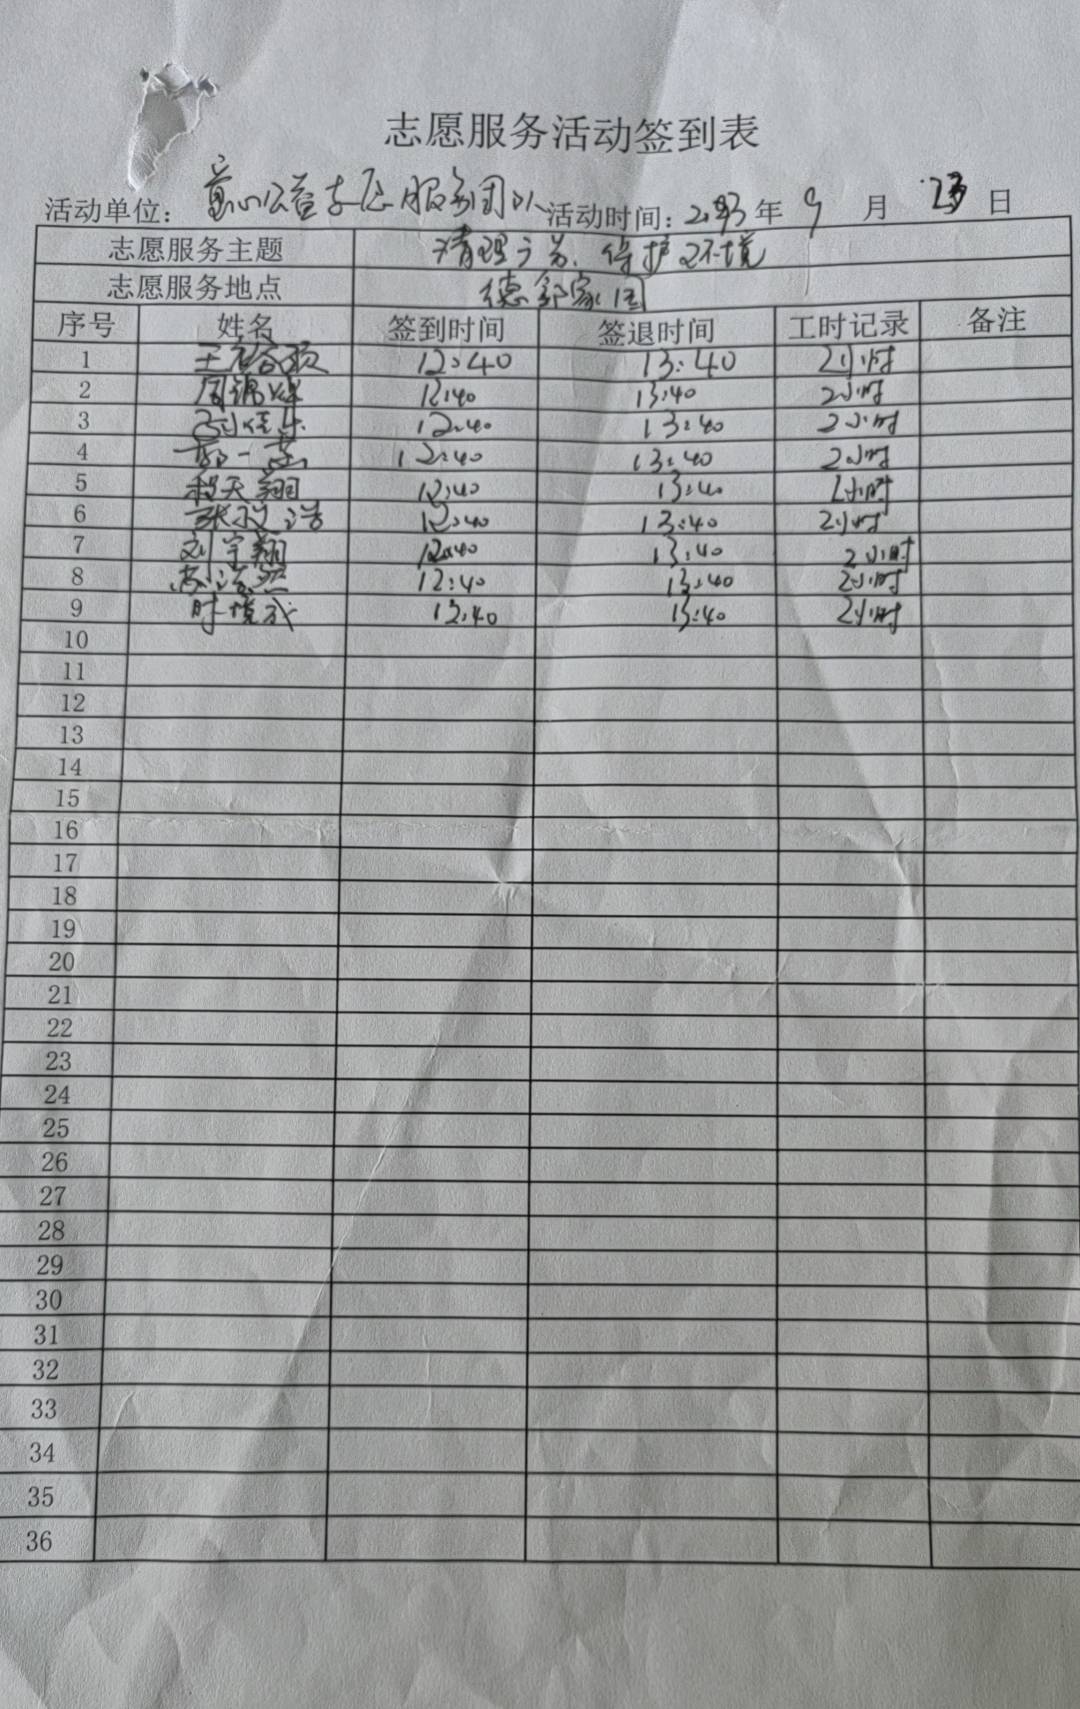 志愿服务活动签到表
活动单位：童心公益志愿服务团队 活动时间：2023年 9 月 23 日
志愿服务主题 清理广告、保护环境
志愿服务地点 德邻家园
序号 姓名 签到时间 签退时间 工时记录 备注
1 王 12:40 13:40 2小时
2 周锦 12:40 13:40 2小时
3 12:40 13:40 2小时
4 一 12:40 13:40 2小时
5 程天翔 12:40 13:40 2小时
6 张议浩 12:40 13:40 2小时
7 刘宇翔 12:40 13:40 2小时
8 苏浩然 12:40 13:40 2小时
9 时境成 12:40 13:40 2小时
10
11
12
13
14
15
16
17
18
19
20
21
22
23
24
25
26
27
28
29
30
31
32
33
34
35
36